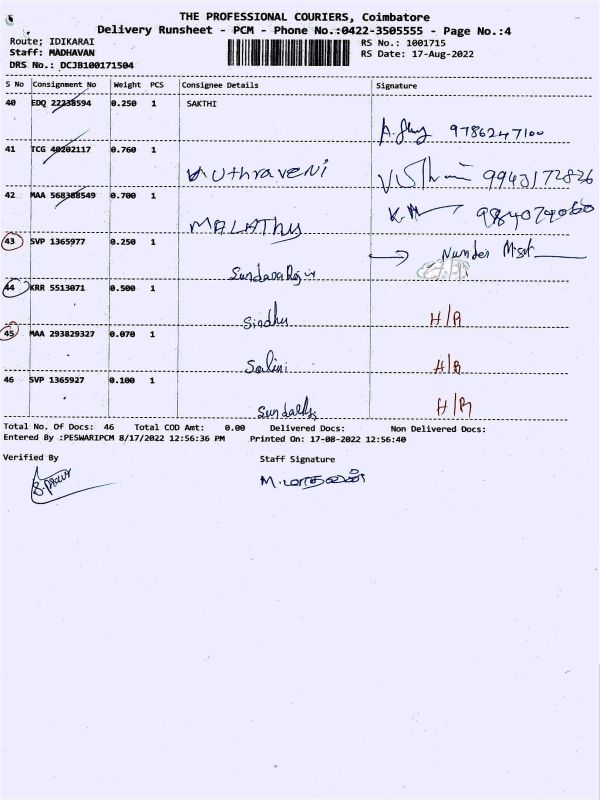 THE PROFESSIONAL COURIERS, Coimbatore
Delivery Runsheet - PCM - Phone No.:0422-3505555 - Page No.:4
Route; IDIKARAI RS No.: 1001715
Staff: MADHAVAN RS Date: 17-Aug-2022
DRS No.: DCJB100171504
S No Consignment No Weight PCS Consignee Details Signature
40 EDQ 22238594 0.250 1 SAKTHI
9786247100
41 TCG 40202117 0.760 1
Muthraveni 9943172826
42 MAA 568388549 0.700 1
MALAThy 9840740060
43 SVP 1365977 0.250 1
44 KRR 5513071 0.500 1
Sindhu H/R
45 MAA 293829327 0.070 1
Salini H/R
46 SVP 1365927 0.100 1
H/R
Total No. Of Docs: 46 Total COD Amt: 0.00 Delivered Docs: Non Delivered Docs:
Entered By :PESWARIPCM 8/17/2022 12:56:36 PM Printed On: 17-08-2022 12:56:40
Verified By Staff Signature
M.மாதவன்